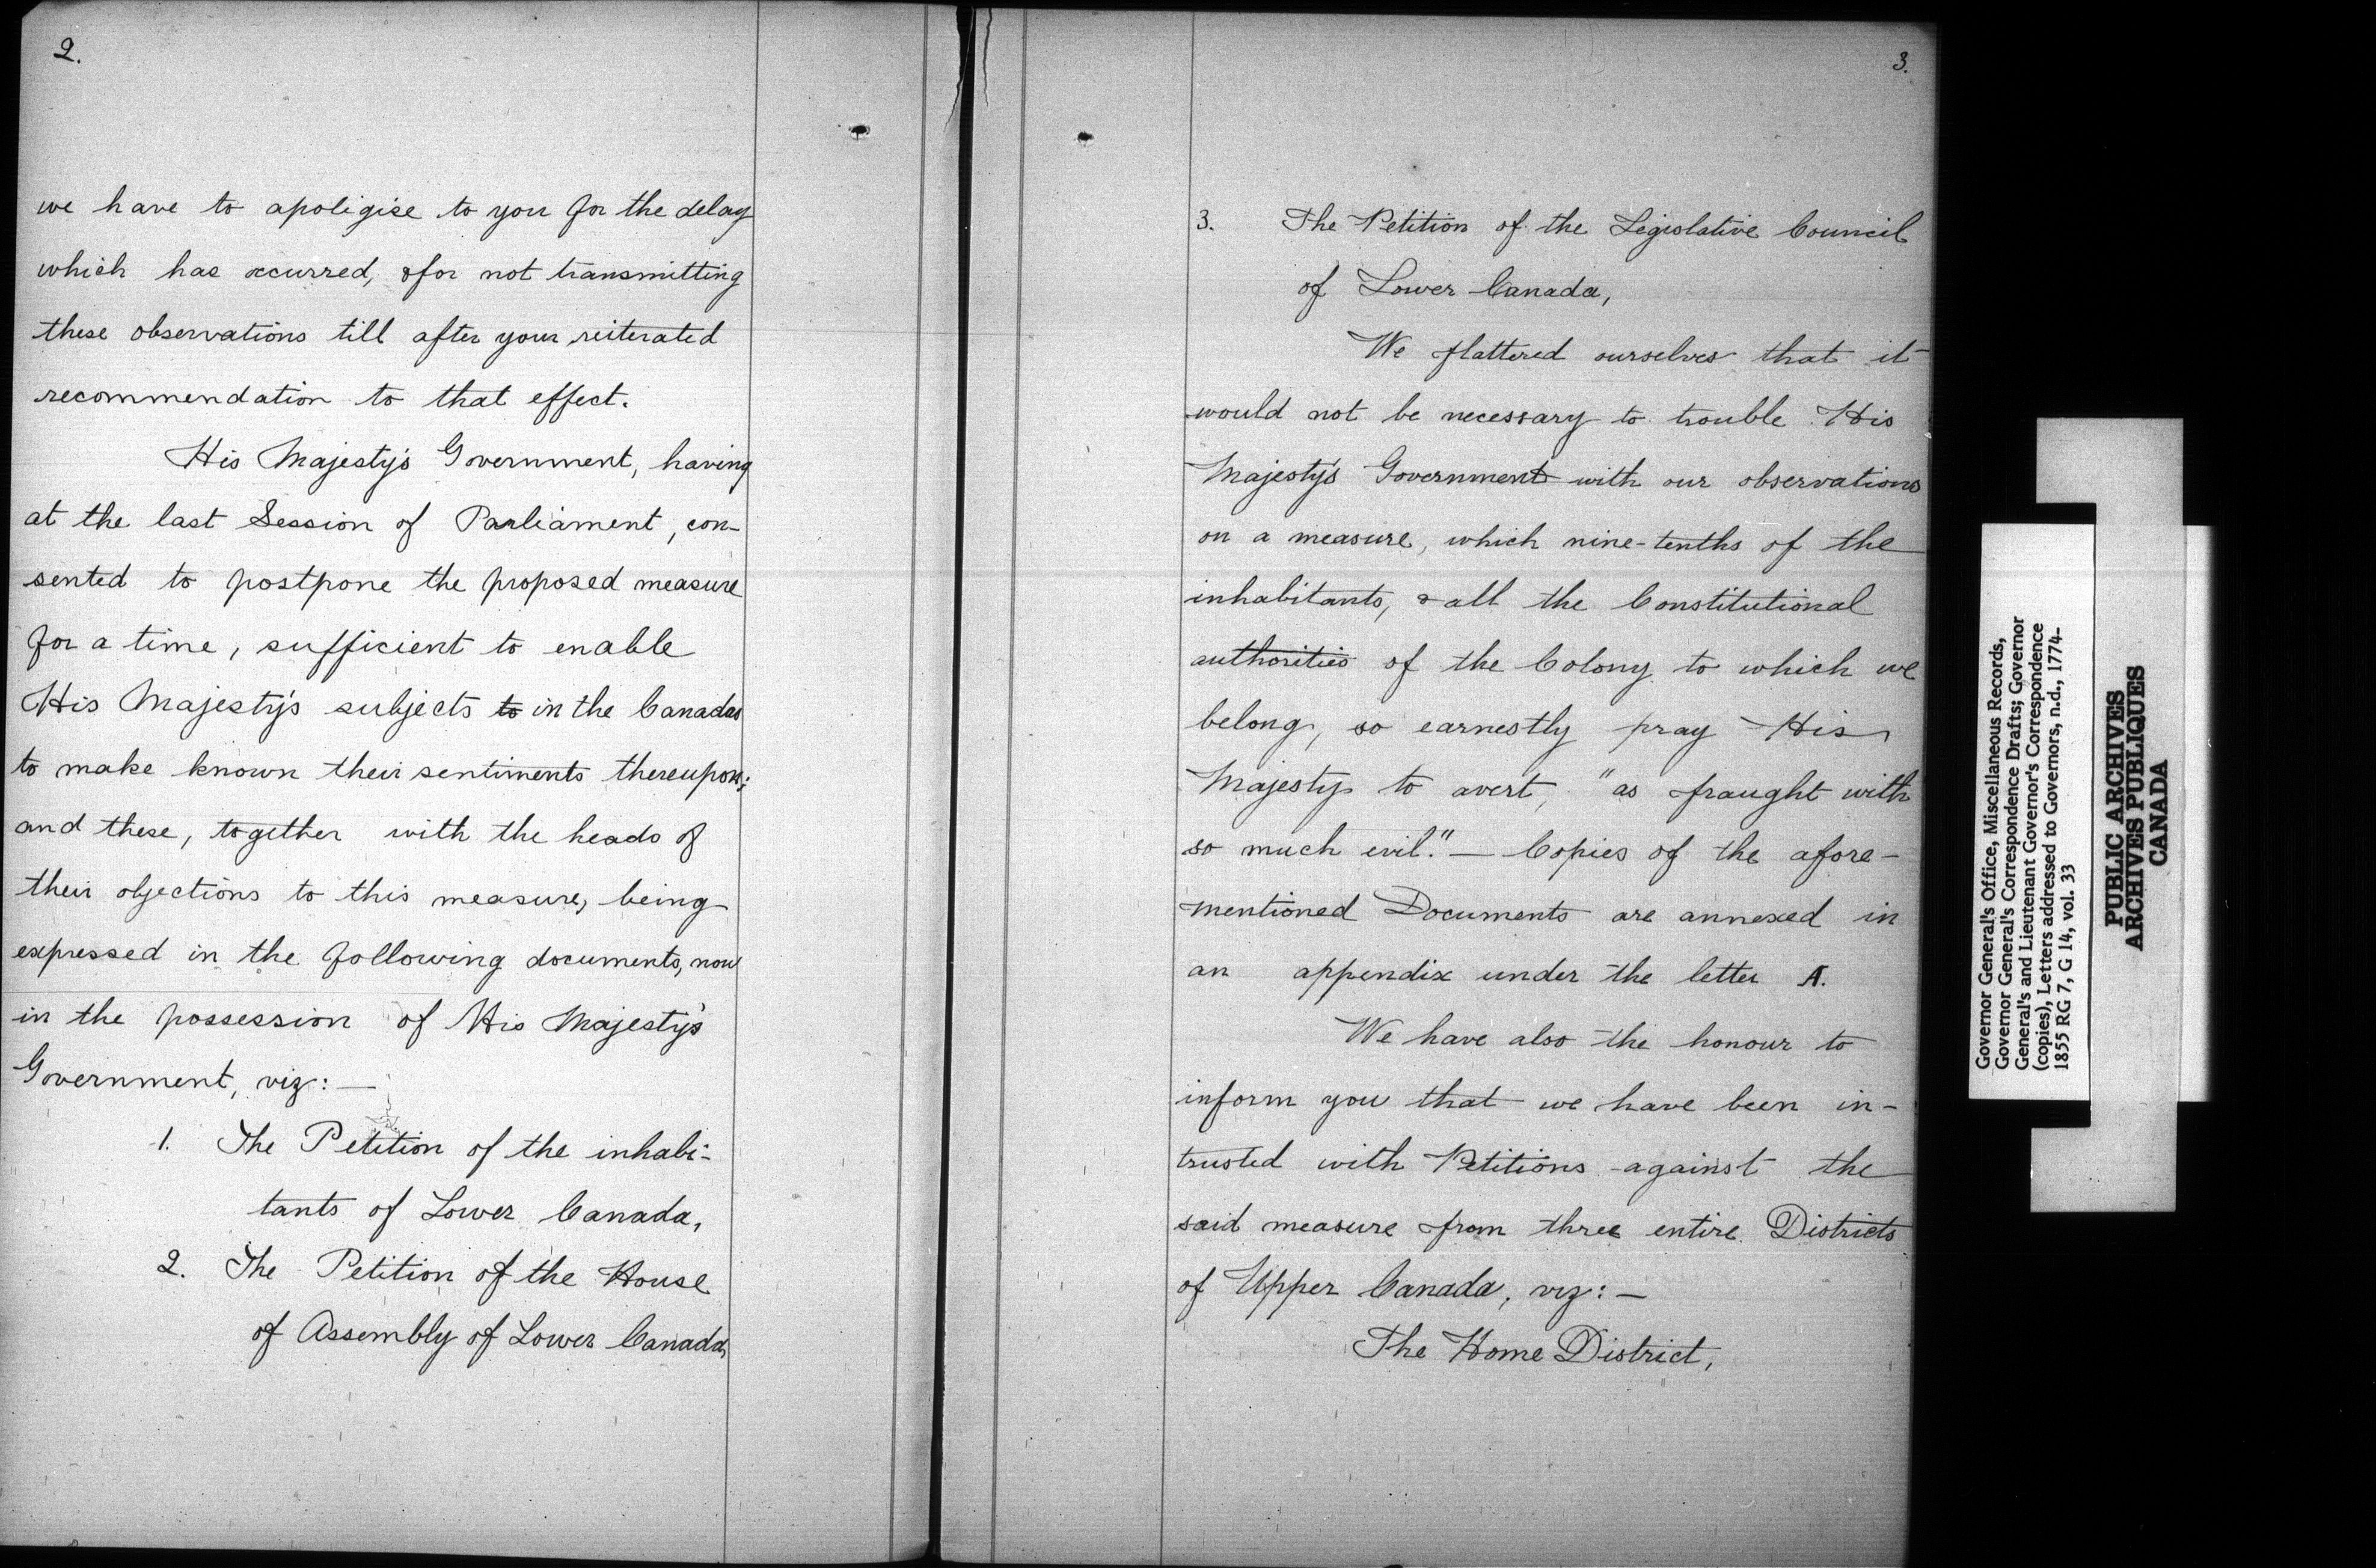 2.
we have to apoligise to you for the delay
which has occurred, & for not transmitting
these observations till after your reiterated
recommendation to that effect.
His Majesty's Government, having
at the last Session of Parliament, con-
sented to postpone the proposed measure
for a time, sufficient to enable
His Majesty's subjects to in the Canadas
to make known their sentiments thereupon;
and these, together with the heads of
their objections to this measure, being
expressed in the following documents, now
in the possession of His Majesty's
Government, viz: —
1. The Petition of the inhabi-
tants of Lower Canada,
2. The Petition of the House
of Assembly of Lower Canada,
3.
3. The Petition of the Legislative Council
of Lower Canada,
We flattered ourselves that it
would not be necessary to trouble His
Majesty's Government with our observations
on a measure, which nine-tenths of the
inhabitants, & all the Constitutional
authorities of the Colony to which we
belong, so earnestly pray His
Majesty to avert, "as fraught with
so much evil." — Copies of the afore-
mentioned Documents are annexed in
an appendix under the letter A.
We have also the honour to
inform you that we have been in-
trusted with Petitions against the
said measure from three entire Districts
of Upper Canada, viz: —
The Home District,
Governor General's Office, Miscellaneous Records,
Governor General's Correspondence Drafts; Governor
General's and Lieutenant Governor's Correspondence
(copies), Letters addressed to Governors, n.d., 1774-
1855 RG 7, G 14, vol. 33
PUBLIC ARCHIVES
ARCHIVES PUBLIQUES
CANADA